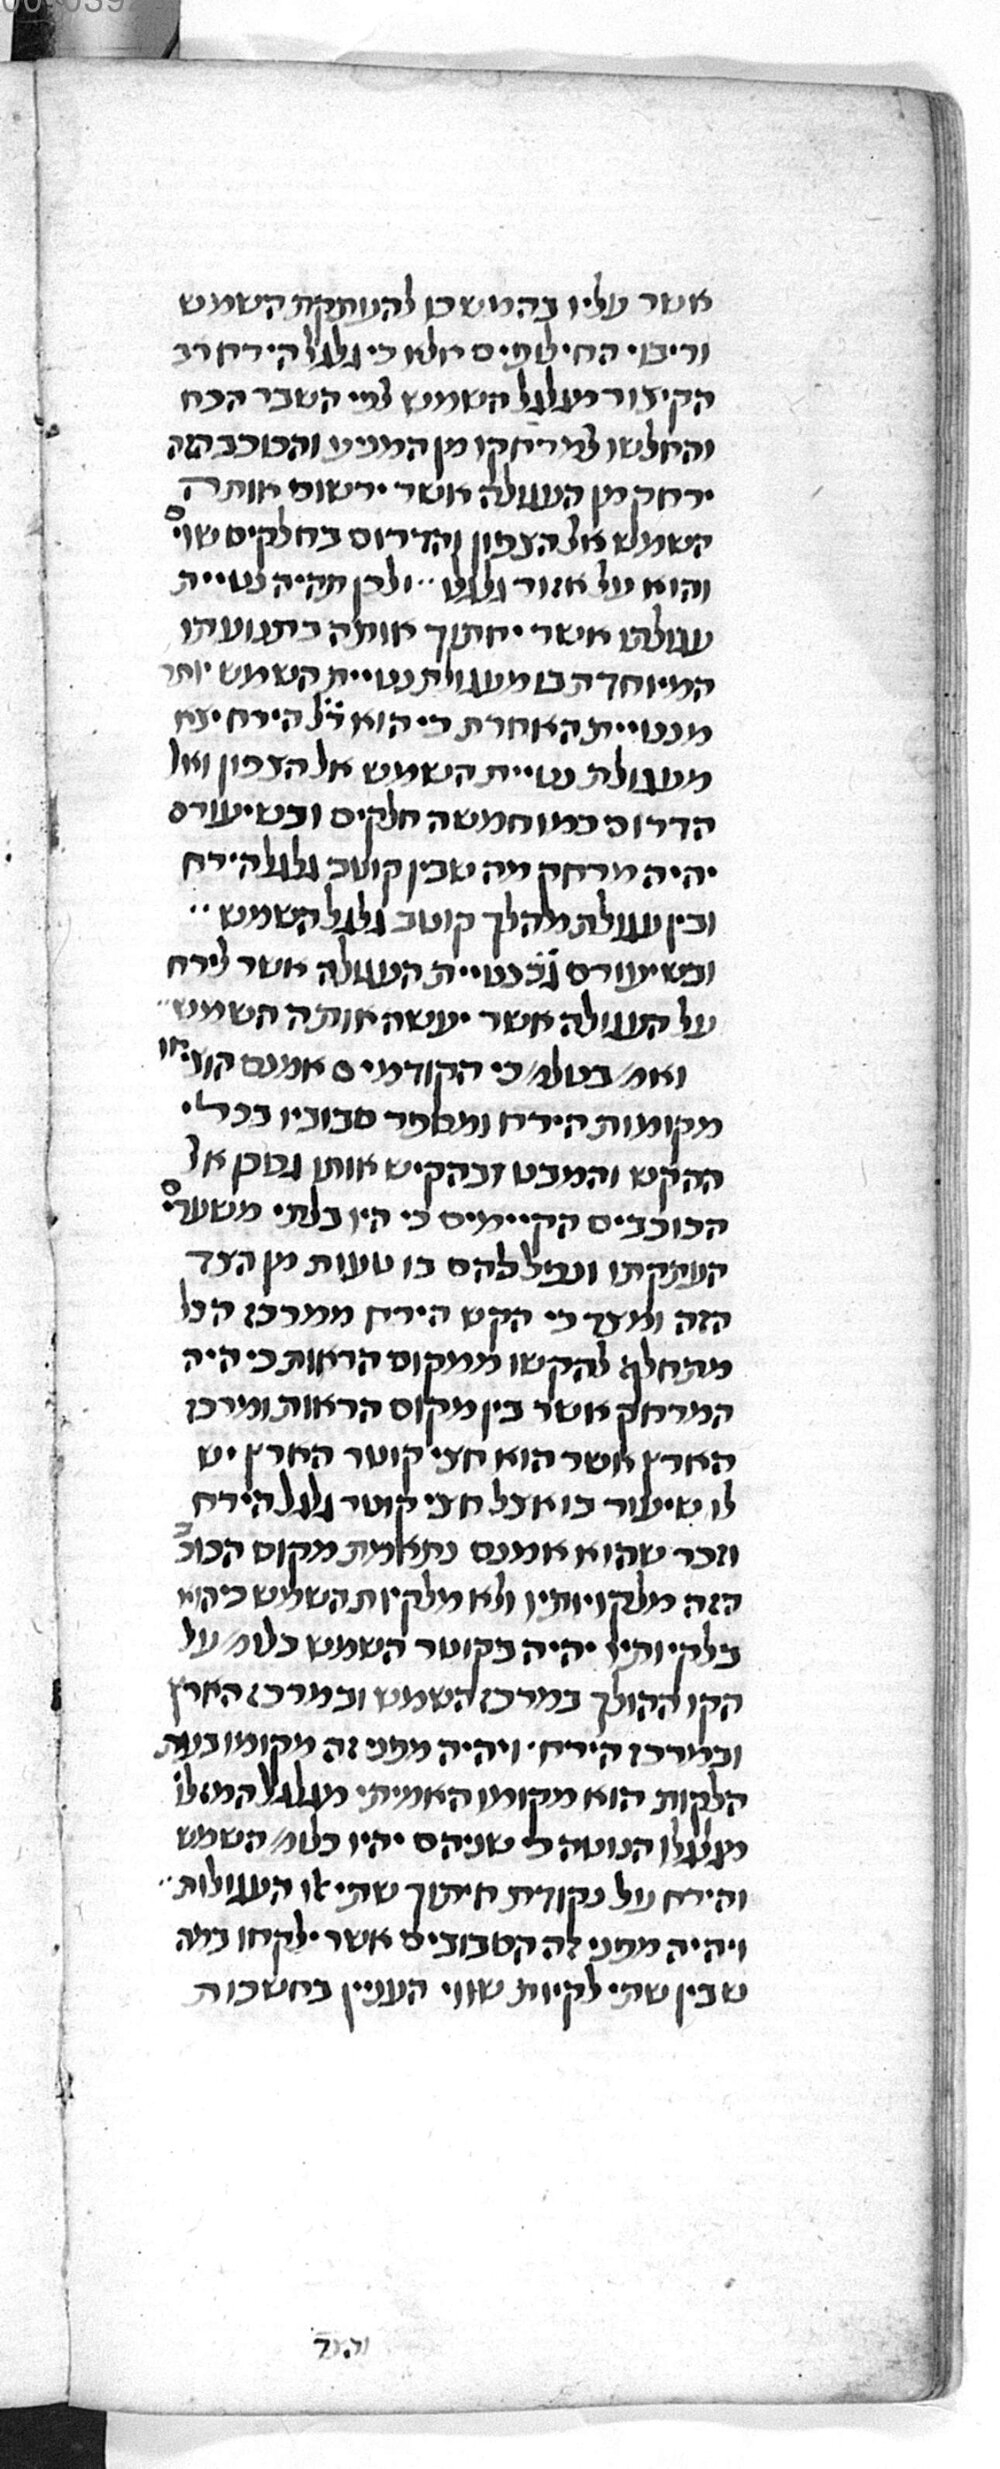 אשר עליו בהמשכו להעתקת השמש
וריבוי החילופים אלא כי גלגל הירח רב
הקיצור מגלגל השמש לפי השבר הכח
והחלשו למרחקו מן המניע והכוכב הזה
ירחק מן העגולה אשר ירשום אותה
השמש אל הצפון והדרום בחלקים שוי'ם
והוא על אזור גלגלו ׳׳ ולכן תהיה נטיית
עגולתו אשר יחתוך אותה בתנועתו
המיוחדת בו מעגולת נטיית השמש יותר
מנטיית האחרת כי הוא ר"ל הירח יצא
מעגולת נטיית השמש אל הצפון ואל
הדרום כמו חמשה חלקים ובשיעורם
יהיה מרחק מה שבין קוטב גלגל הירח
ובין עגולת מהלך קוטב גלגל השמש ׳׳
ובשיעורם ג"כ נטיית העגולה אשר לירח
על העגולה אשר יעשה אותה השמש ׳׳
ואמ' בטלמ' כי הקודמים אמנם הוציאו
מקומות הירח ומספר סבוביו בכלי
ההקש והמבט ובהקיש אותו גם כן אל
הכוכבים הקיימים כי היו בלתי משערי'ם
העתקתו ונפל להם בו טעות מן הצד
הזה ומצד כי הקש הירח ממרכז הכל
מתחלף להקשו ממקום הראות כי היה
המרחק אשר בין מקום הראות ומרכז
הארץ אשר הוא חצי קוטר הארץ יש
לו שיעור בו אצל חצי קוטר גלגל הירח
וזכר שהוא אמנם נתאמת מקום הכוכב
הזה מלקויותיו ולא מלקיות השמש כי הוא
בלקיותיו יהיה בקוטר השמש כלומ' על
הקו ההולך במרכז השמש ובמרכז הארץ
ובמרכז הירח. ויהיה מפני זה מקומו בעת
הלקות הוא מקומו האמיתי מגלגל המזלו'
מגלגלו הנוטה כי שניהם יהיו כלומ' השמש
והירח על נקודת חיתוך שתי אלו העגולות ׳׳
ויהיה מפני זה הסבובים אשר ילקחו במה
שבין שתי לקיות שווי הענין בחשכות